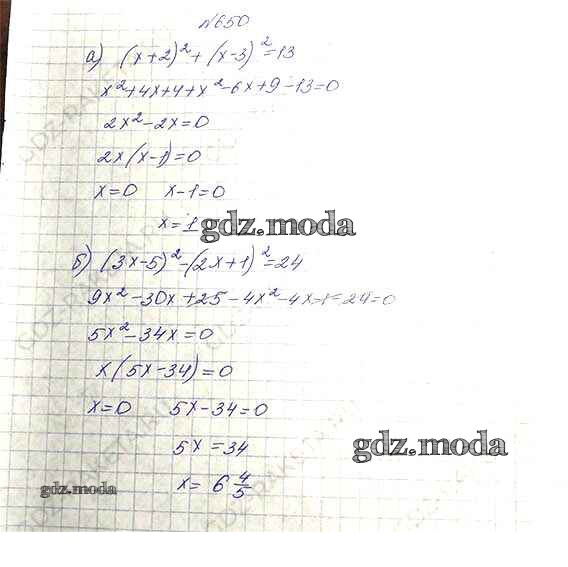 №650
а) (x+2)²+(x-3)²=13
x²+4x+4+x²-6x+9-13=0
2x²-2x=0
2x(x-1)=0
x=0 x-1=0
x=1
gdz.moda
б) (3x-5)²-(2x+1)²=24
9x²-30x+25-4x²-4x-1-24=0
5x²-34x=0
x(5x-34)=0
x=0 5x-34=0
5x=34
gdz.moda
x=6 4/5
gdz.moda